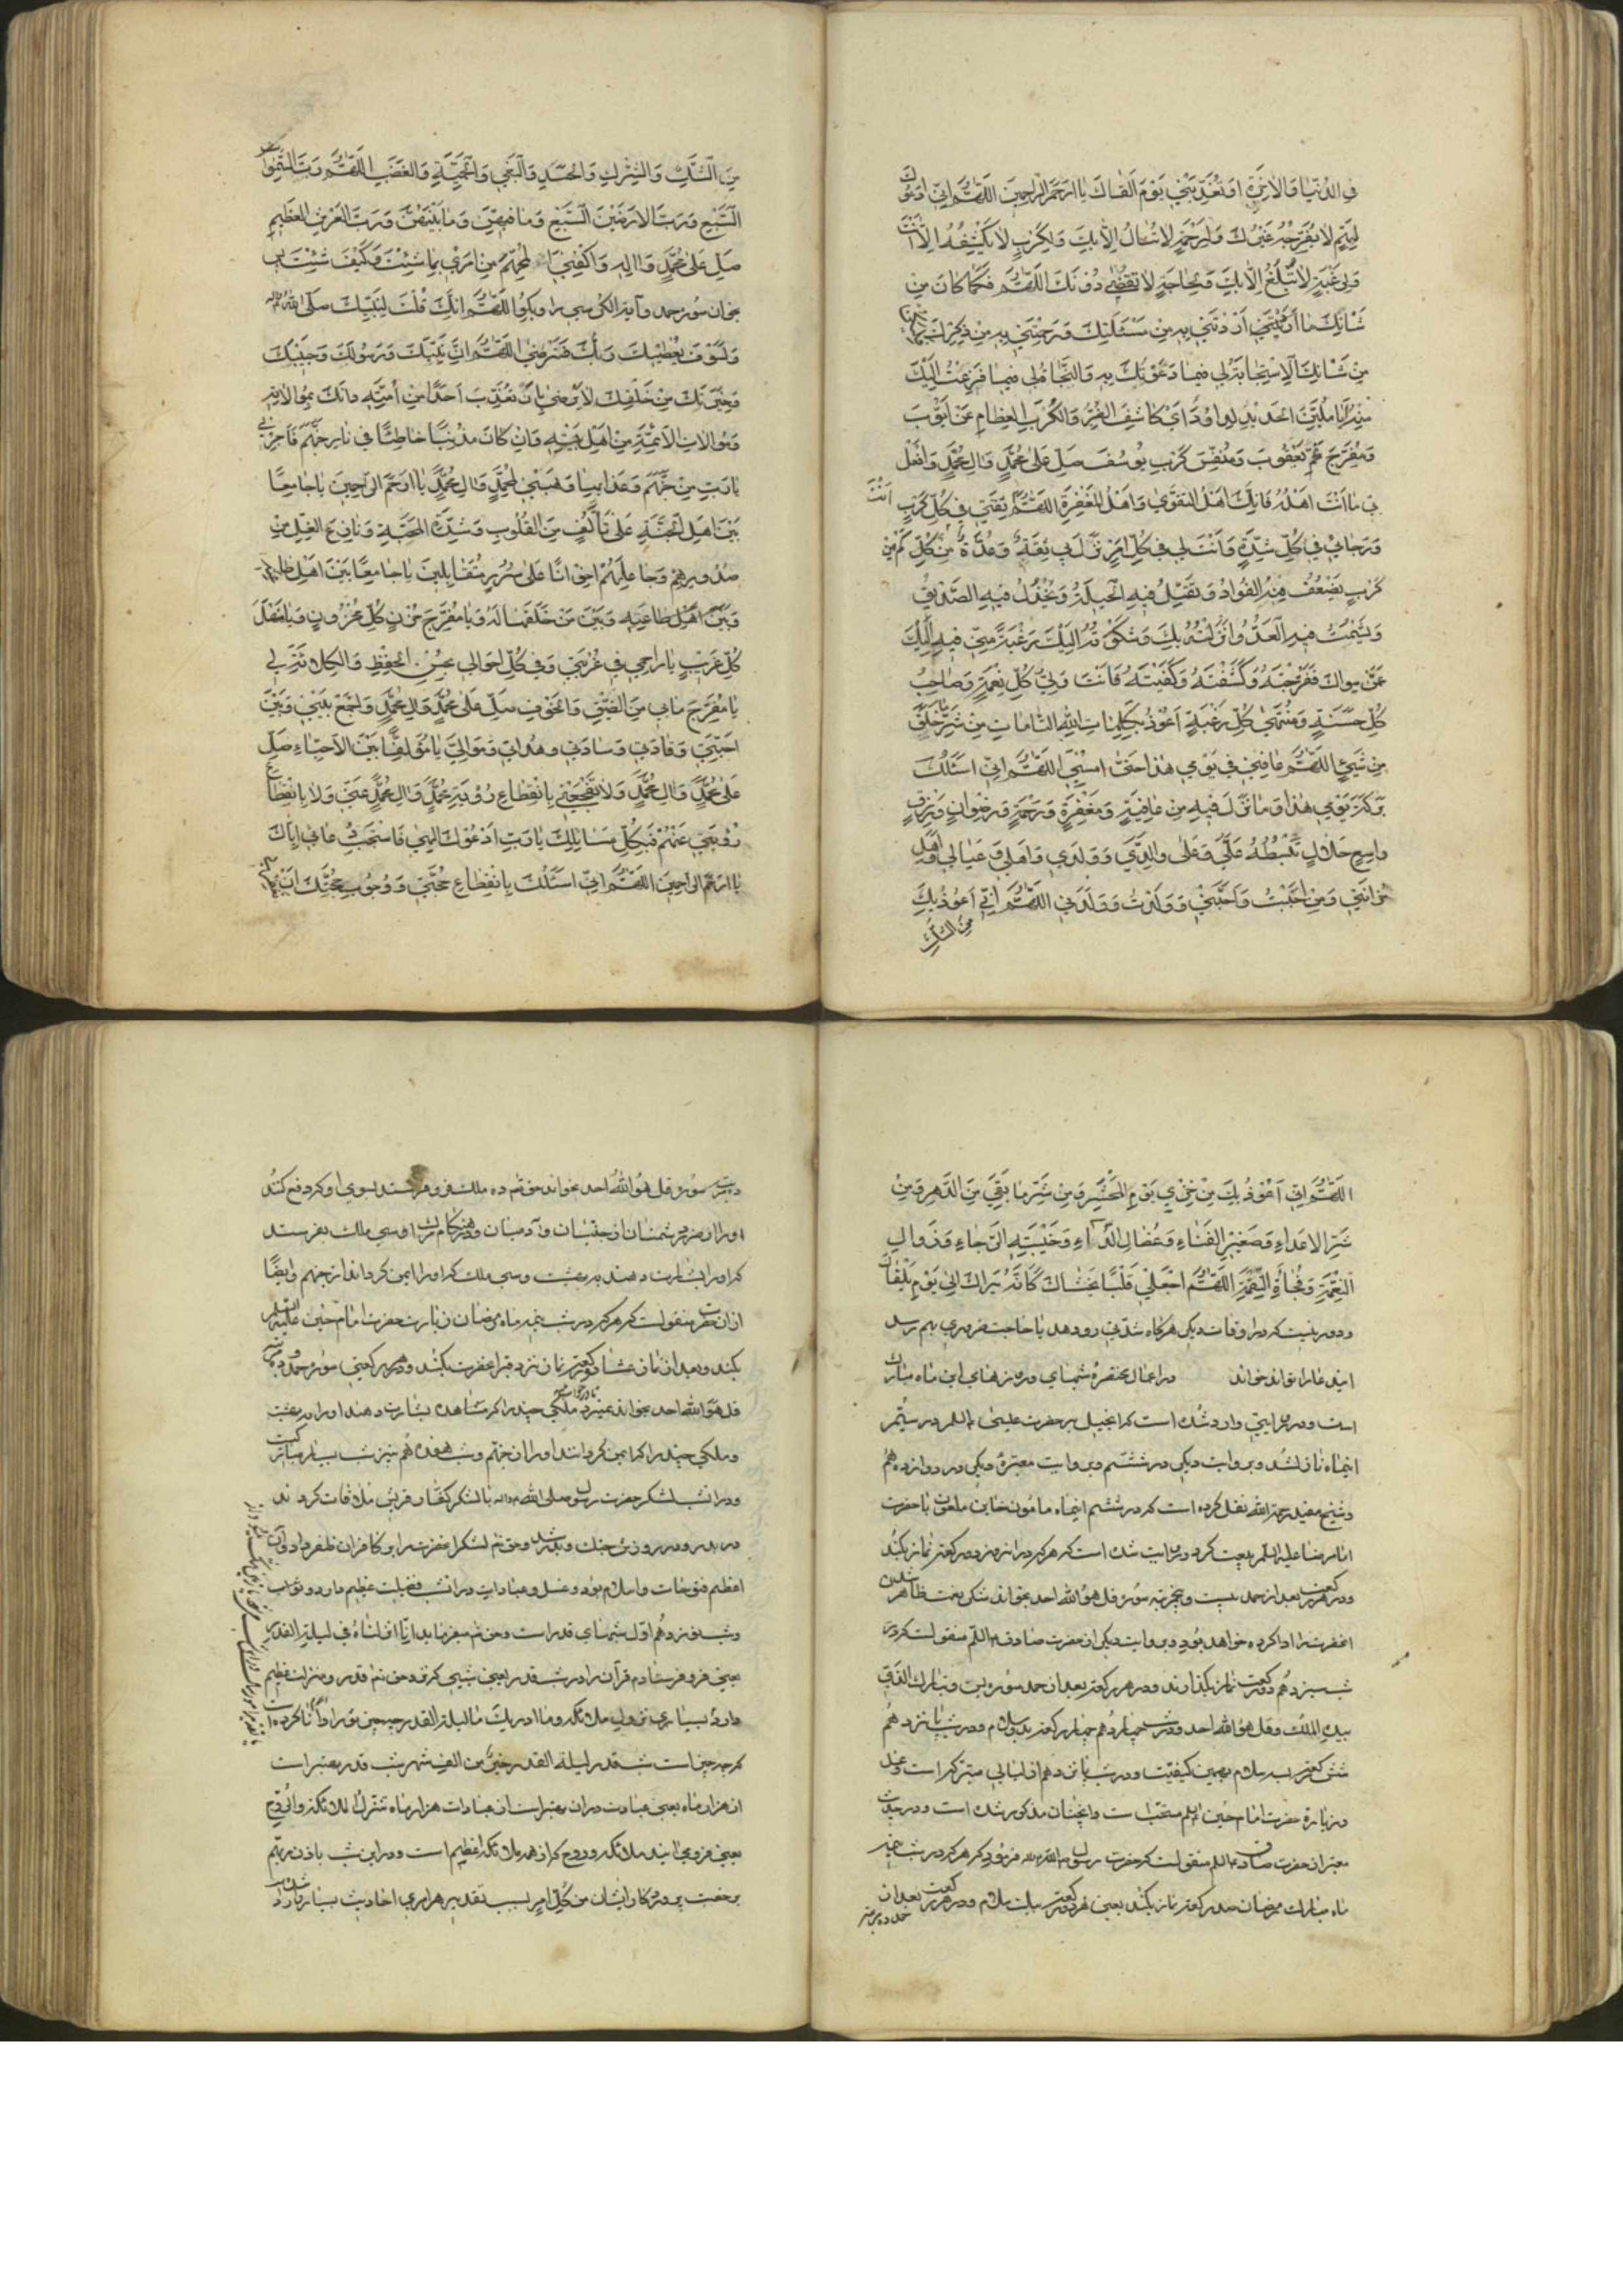 فِي الدُّنْيَا وَالآخِرَةِ اَوْ تُعَذِّبَنِي يَوْمَ اَلْقَاكَ يَا اَرْحَمَ الرَّاحِمِينَ اَللّٰهُمَّ اِنِّي اَدْعُوكَ
لِهَمٍّ لا يُفَرِّجُهُ غَيْرُكَ وَلِرَحْمَةٍ لا تُنَالُ اِلّا بِكَ وَلِكَرْبٍ لا يَكْشِفُهُ اِلّا اَنْتَ
وَلِرَغْبَةٍ لا تُبْلَغُ اِلّا بِكَ وَلِحَاجَةٍ لا تُقْضٰى دُونَكَ اَللّٰهُمَّ فَكَمَا كَانَ مِنْ
شَأْنِكَ مَا اَذِنْتَنِي بِهِ مِنْ مَسْئَلَتِكَ وَرَحِمْتَنِي بِهِ مِنْ ذِكْرِكَ
مِنْ شَأْنِكَ الاِسْتِجَابَةُ لِي فِيمَا دَعَوْتُكَ بِهِ وَالنَّجَاةُ لِي فِيمَا فَزِعْتُ اِلَيْكَ
مِنْهُ اَيَا مُلَيِّنَ الْحَدِيدِ لِدَاوُدَ اَيْ كَاشِفَ الضُّرِّ وَالْكُرَبِ الْعِظَامِ عَنْ اَيُّوبَ
وَمُفَرِّجَ هَمِّ يَعْقُوبَ وَمُنَفِّسَ كَرْبِ يُوسُفَ صَلِّ عَلٰى مُحَمَّدٍ وَآلِ مُحَمَّدٍ وَافْعَلْ
بِي مَا اَنْتَ اَهْلُهُ فَاِنَّكَ اَهْلُ التَّقْوٰى وَاَهْلُ الْمَغْفِرَةِ اَللّٰهُمَّ ثِقَتِي فِي كُلِّ كَرْبٍ اَنْتَ
وَرَجَائِي فِي كُلِّ شِدَّةٍ وَاَنْتَ لِي فِي كُلِّ اَمْرٍ نَزَلَ بِي ثِقَةٌ وَعُدَّةٌ كَمْ مِنْ
كَرْبٍ يَضْعُفُ مِنْهُ الْفُؤَادُ وَتَقِلُّ فِيهِ الْحِيلَةُ وَيَخْذُلُ فِيهِ الصَّدِيقُ
وَيَشْمَتُ فِيهِ الْعَدُوُّ اَنْزَلْتُهُ بِكَ وَشَكَوْتُهُ اِلَيْكَ رَغْبَةً مِنِّي فِيهِ اِلَيْكَ
عَمَّنْ سِوَاكَ فَفَرَّجْتَهُ وَكَشَفْتَهُ وَكَفَيْتَهُ فَاَنْتَ وَلِيُّ كُلِّ نِعْمَةٍ وَصَاحِبُ
كُلِّ حَسَنَةٍ وَمُنْتَهٰى كُلِّ رَغْبَةٍ اَعُوذُ بِكَلِمَاتِ اللّٰهِ التَّامَّاتِ مِنْ شَرِّ مَا خَلَقَ
مِنْ شَيْءٍ اَللّٰهُمَّ عَافِنِي فِي يَوْمِي هٰذَا حَتّٰى اُمْسِيَ اَللّٰهُمَّ اِنِّي اَسْئَلُكَ
بَرَكَةَ يَوْمِي هٰذَا وَمَا نَزَلَ فِيهِ مِنْ عَافِيَةٍ وَمَغْفِرَةٍ وَرَحْمَةٍ وَرِضْوَانٍ وَرِزْقٍ
وَاسِعٍ حَلالٍ تَبْسُطُهُ عَلَيَّ وَعَلٰى وَالِدَيَّ وَوَلَدِي وَاَهْلِي وَعِيَالِي وَاَهْلِ
حُزَانَتِي وَمَنْ اَحْبَبْتُ وَاَحَبَّنِي وَوَلَدْتُ وَوَلَدَنِي اَللّٰهُمَّ اِنِّي اَعُوذُ بِكَ
مِنَ الشَّكِّ
مِنَ الشَّكِّ وَالشِّرْكِ وَالْحَسَدِ وَالْبَغْيِ وَالْحَمِيَّةِ وَالْغَضَبِ اَللّٰهُمَّ رَبَّ السَّمٰوَاتِ
السَّبْعِ وَرَبَّ الاَرَضِينَ السَّبْعِ وَمَا فِيهِنَّ وَمَا بَيْنَهُنَّ وَرَبَّ الْعَرْشِ الْعَظِيمِ
صَلِّ عَلٰى مُحَمَّدٍ وَآلِهِ وَاكْفِنِي الْمُهِمَّ مِنْ اَمْرِي بِمَا شِئْتَ وَكَيْفَ شِئْتَ پس
بخوان سوره حمد و آية الكرسى را و بكو اَللّٰهُمَّ اِنَّكَ قُلْتَ لِنَبِيِّكَ صَلَّى اللّٰهُ عليه واله
وَلَسَوْفَ يُعْطِيكَ رَبُّكَ فَتَرْضٰى اَللّٰهُمَّ اِنَّ نَبِيَّكَ وَرَسُولَكَ وَحَبِيبَكَ
وَخِيَرَتَكَ مِنْ خَلْقِكَ لا يَرْضٰى بِاَنْ تُعَذِّبَ اَحَدًا مِنْ اُمَّتِهِ دَانَكَ بِمُوالاتِهِ
وَمُوالاتِ الاَئِمَّةِ مِنْ اَهْلِ بَيْتِهِ وَاِنْ كَانَ مُذْنِبًا خَاطِئًا فِي نَارِ جَهَنَّمَ فَاَجِرْنِي
يَا رَبِّ مِنْ جَهَنَّمَ وَعَذَابِهَا وَهَبْنِي لِمُحَمَّدٍ وَآلِ مُحَمَّدٍ يَا اَرْحَمَ الرَّاحِمِينَ يَا جَامِعًا
بَيْنَ اَهْلِ الْجَنَّةِ عَلٰى تَأَلُّفٍ مِنَ الْقُلُوبِ وَشِدَّةِ الْمَحَبَّةِ وَنَازِعَ الْغِلِّ مِنْ
صُدُورِهِمْ وَجَاعِلَهُمْ اِخْوَانًا عَلٰى سُرُرٍ مُتَقَابِلِينَ يَا جَامِعًا بَيْنَ اَهْلِ طَاعَتِهِ
وَبَيْنَ اَهْلِ طَاعَتِهِ وَبَيْنَ مَنْ خَلَقَهَا لَهُ وَيَا مُفَرِّجَ حُزْنِ كُلِّ مَحْزُونٍ وَيَا مَنْهَلَ
كُلِّ غَرِيبٍ يَا رَاحِمِي فِي غُرْبَتِي وَفِي كُلِّ اَحْوَالِي بِحُسْنِ الْحِفْظِ وَالْكِلاءَةِ لِي
يَا مُفَرِّجَ مَا بِي مِنَ الضِّيقِ وَالْخَوْفِ صَلِّ عَلٰى مُحَمَّدٍ وَآلِ مُحَمَّدٍ وَاجْمَعْ بَيْنِي وَبَيْنَ
اَحِبَّتِي وَقَادَتِي وَسَادَتِي وَهُدَاتِي وَمَوَالِيَّ يَا مُؤَلِّفًا بَيْنَ الاَحِبَّاءِ صَلِّ
عَلٰى مُحَمَّدٍ وَآلِ مُحَمَّدٍ وَلا تَفْجَعْنِي بِانْقِطَاعِ رُؤْيَةِ مُحَمَّدٍ وَآلِ مُحَمَّدٍ عَنِّي وَلا بِانْقِطَاعِ
رُؤْيَتِي عَنْهُمْ فَبِكُلِّ مَسَائِلِكَ يَا رَبِّ اَدْعُوكَ اِلٰهِي فَاسْتَجِبْ دُعَائِي اِيَّاكَ
يَا اَرْحَمَ الرَّاحِمِينَ اَللّٰهُمَّ اِنِّي اَسْئَلُكَ بِانْقِطَاعِ حُجَّتِي وَوُجُوبِ حُجَّتِكَ
اَللّٰهُمَّ اِنِّي اَعُوذُ بِكَ مِنْ خِزْيِ يَوْمِ الْمَحْشَرِ وَمِنْ شَرِّ مَا بَقِيَ مِنَ الدَّهْرِ وَمِنْ
شَرِّ الاَعْدَاءِ وَصَغِيرِ الْفَنَاءِ وَعُضَالِ الدَّاءِ وَخَيْبَةِ الرَّجَاءِ وَزَوَالِ
النِّعْمَةِ وَفُجْأَةِ النِّقْمَةِ اَللّٰهُمَّ اجْعَلْ لِي قَلْبًا يَخْشَاكَ كَاَنَّهُ يَرَاكَ اِلٰى يَوْمِ يَلْقَاكَ
و دور نيست كه در اوقات ديكر هركاه شدتى رو دهد يا حاجت ضرورى بهم رسد
اين دعا را تواند خواند در اعمال مختصره شبهاى و روزهاى اين ماه مبارك
است و در روايتى وارد شده است كه انجيل بر حضرت عيسى ع در سيّم
اينماه نازل شد و بروايت ديكر در ششم و بروايت معتبره ديكر در دوازدهم
و شيخ مفيد رحمه الله نقل كرده است كه در ششم اينماه مامون خاين ملعون با حضرت
امام رضا عليه السلم بيعت كرد و روايت شده است كه هر كه در انروز دو ركعت نماز بكند
و در هر ركعت بعد از حمد بيست و پنج مرتبه سوره قل هو الله احد بخواند شكر نعمت ظاهر شدن
انحضرت را ادا كرده خواهد بود و بروايت ديكر از حضرت صادق ع منقولست كه در
شب سيزدهم دو ركعت نماز بكذارند و در هر ركعت بعد از حمد سوره يس و تبارك الذى
بيده الملك و قل هو الله احد و در شب چهاردهم چهار ركعت بدو سلام و در شب پانزدهم
شش ركعت بسه سلام بهمين كيفيت و در شب پانزدهم از ليالى متبركه است و غسل
و زيارة حضرت امام حسين ع مستحب است و انچنان مذكور شده است و در حديث
معتبر از حضرت صادق ع منقولست كه حضرت رسول ص فرمود كه هر كه در شب نيمه
ماه مبارك رمضان صد ركعت نماز بكند يعنى هر دو ركعت بيك سلام و در هر ركعت بعد از
حمد ده مرتبه
ده مرتبه سوره قل هو الله احد بخواند حق تعالى ده ملك فرو فرستد بسوى او كه دفع كنند
او را از ضرر دشمنان از جنيان و آدميان و در هنكام مرك او سى ملك بفرستد
كه او را بشارت دهند به بهشت و سى ملك كه او را ايمن كردانند از جهنم و ايضا
از ان حضرت منقولست كه هر كه در شب نيمه ماه رمضان زيارت حضرت امام حسين عليه السلم
بكند و بعد از نماز عشا ده ركعت نماز نزد قبر انحضرت بكند و در هر ركعتى سوره حمد و ده مرتبه
قل هو الله احد بخواند نميرد تا در خواب ملكى چند را كه مشاهده بشارت دهند او را به بهشت
و ملكى چند را كه ايمن كردانند او را از جهنم و شب هفدهم نيز شب بسيار مباركيست
و در انشب لشكر حضرت رسول صلى الله عليه واله با لشكر كفار قريش ملاقات كردند
در بدر و در روزش جنك و بدر شد و حق تعالى لشكر انحضرت را بر كافران ظفر داد و آن
اعظم فتوحات اسلام بود و غسل و عبادات در انشب فضيلت عظيم دارد و ثواب
و شب نوزدهم اول شبهاى قدر است و حق تعالى ميفرمايد انا انزلناه فى ليلة القدر
يعنى فرو فرستادم قرآن را در شب قدر يعنى شبى كه نزد حق تعالى قدر و منزلت عظيم
دارد بسيارى نزول ملائكه و ما ادريك ما ليلة القدر چه چيز تو را دانا كرده است
كه چه چيز است شب قدر ليلة القدر خير من الف شهر شب قدر بهتر است
از هزار ماه يعنى عبادت در ان بهتر است از عبادات هزار ماه تنزل الملائكة والروح
يعنى فرو مى آيند ملائكه و روح كه از همه ملائكه اعظم است و در اين شب باذن ربهم
برخصت پروردكار ايشان من كل امر بسبب تقدير هر امرى احاديث بسيار وارد شده است